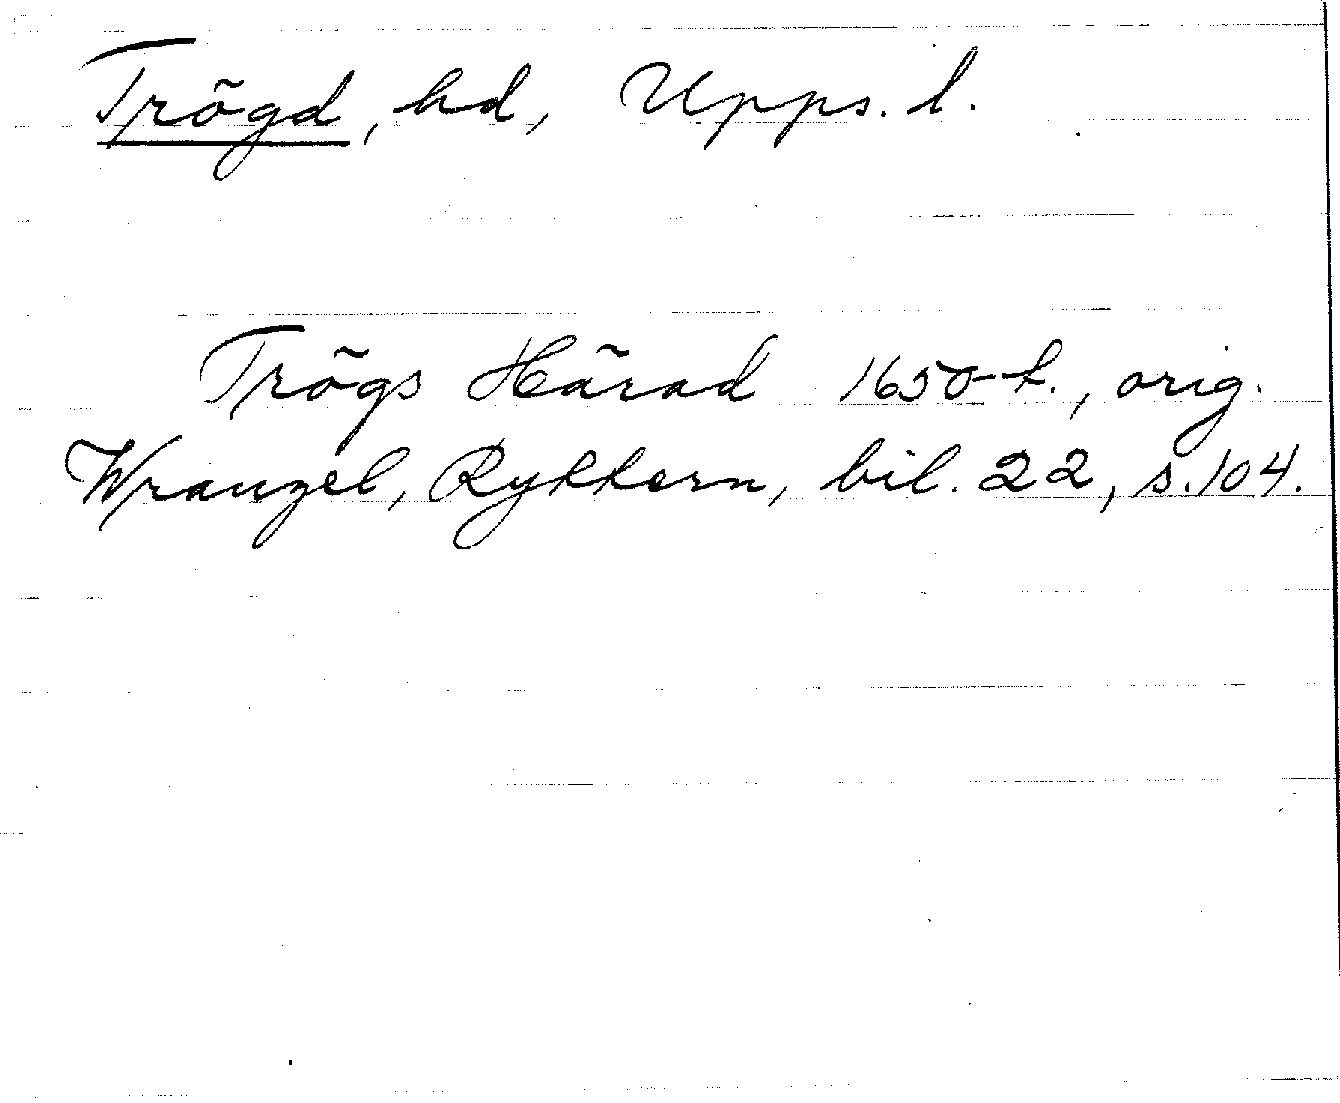 Trögd, hd, Upps. l.
Trögs Härad 1650-t., orig.
Wrangel, Rykkern, bil. 22, s. 104.